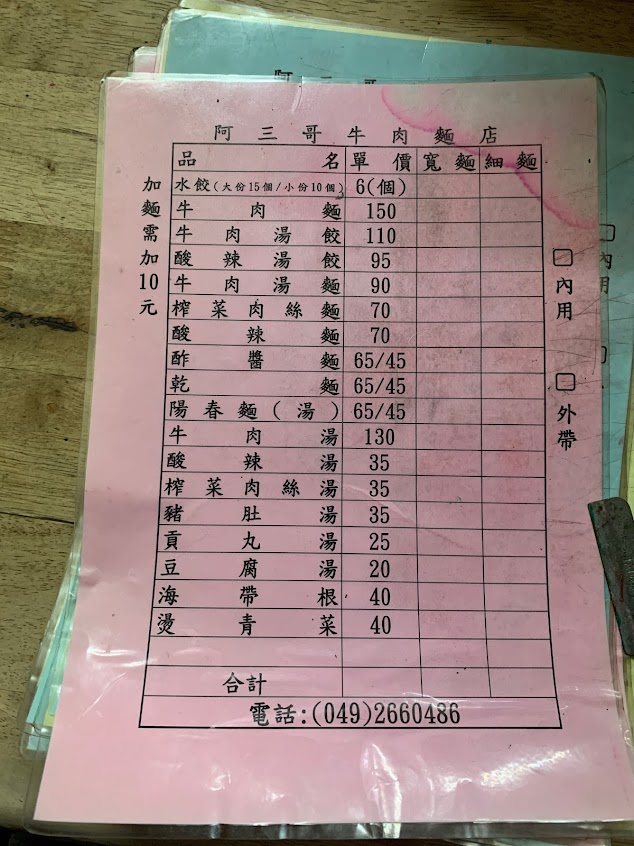 阿三哥牛肉麵店
品名 單價 寬麵 細麵
水餃(大份15個/小份10個) 6(個)
牛肉麵 150
牛肉湯餃 110
酸辣湯餃 95
牛肉湯麵 90
榨菜肉絲麵 70
酸辣麵 70
酢醬麵 65/45
乾麵 65/45
陽春麵(湯) 65/45
牛肉湯 130
酸辣湯 35
榨菜肉絲湯 35
豬肚湯 35
貢丸湯 25
豆腐湯 20
海帶根 40
燙青菜 40
合計
電話:(049)2660486
加麵需加10元
□內用
□外帶